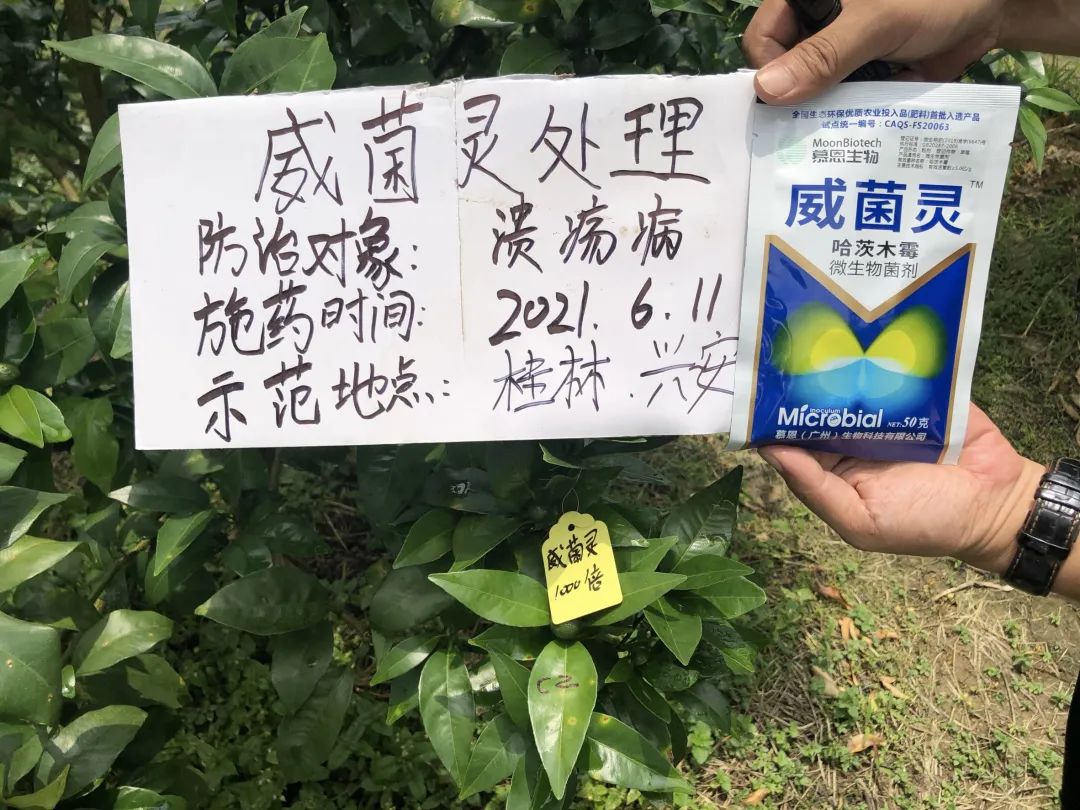 威菌灵处理
防治对象: 溃疡病
施药时间: 2021.6.11
示范地点: 桂林.兴安
全国生态环保优质农业投入品(肥料)首批入选产品
试点统一编号:CAQS-FS20063
MoonBiotech
慕恩生物
威菌灵™
哈茨木霉
微生物菌剂
inoculum
Microbial
NET:50克
慕恩(广州)生物科技有限公司
威菌灵
1000倍
C2